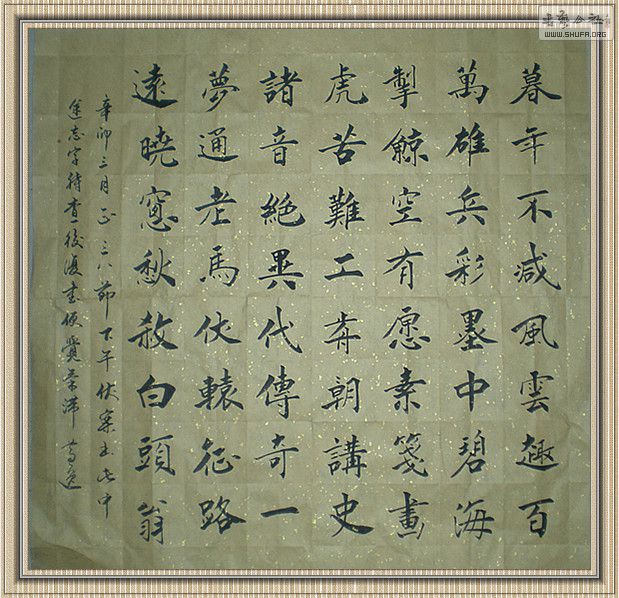 暮年不減風雲趣百
萬雄兵彩墨中碧海
掣鯨空有愿素箋畫
虎苦難工朝講史
諸音絕異代傳奇一
夢通老馬伏轅征路
遠曉窓愁殺白頭翁
辛卯三月正三八節下午伏案书此中
途忘字待查後復书便覺
书艺公社
WWW.SHUFA.ORG